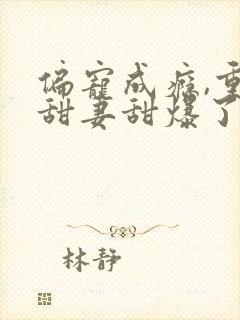 偏宠成瘾,重
甜妻甜爆了
林静